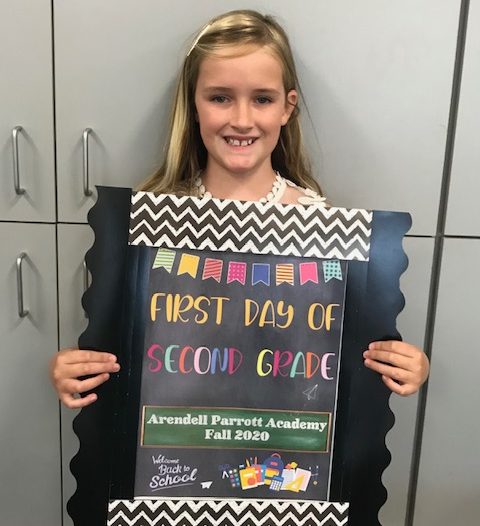 FIRST DAY OF
SECOND GRADE
Arendell Parrott Academy
Fall 2020
Welcome
Back to
School